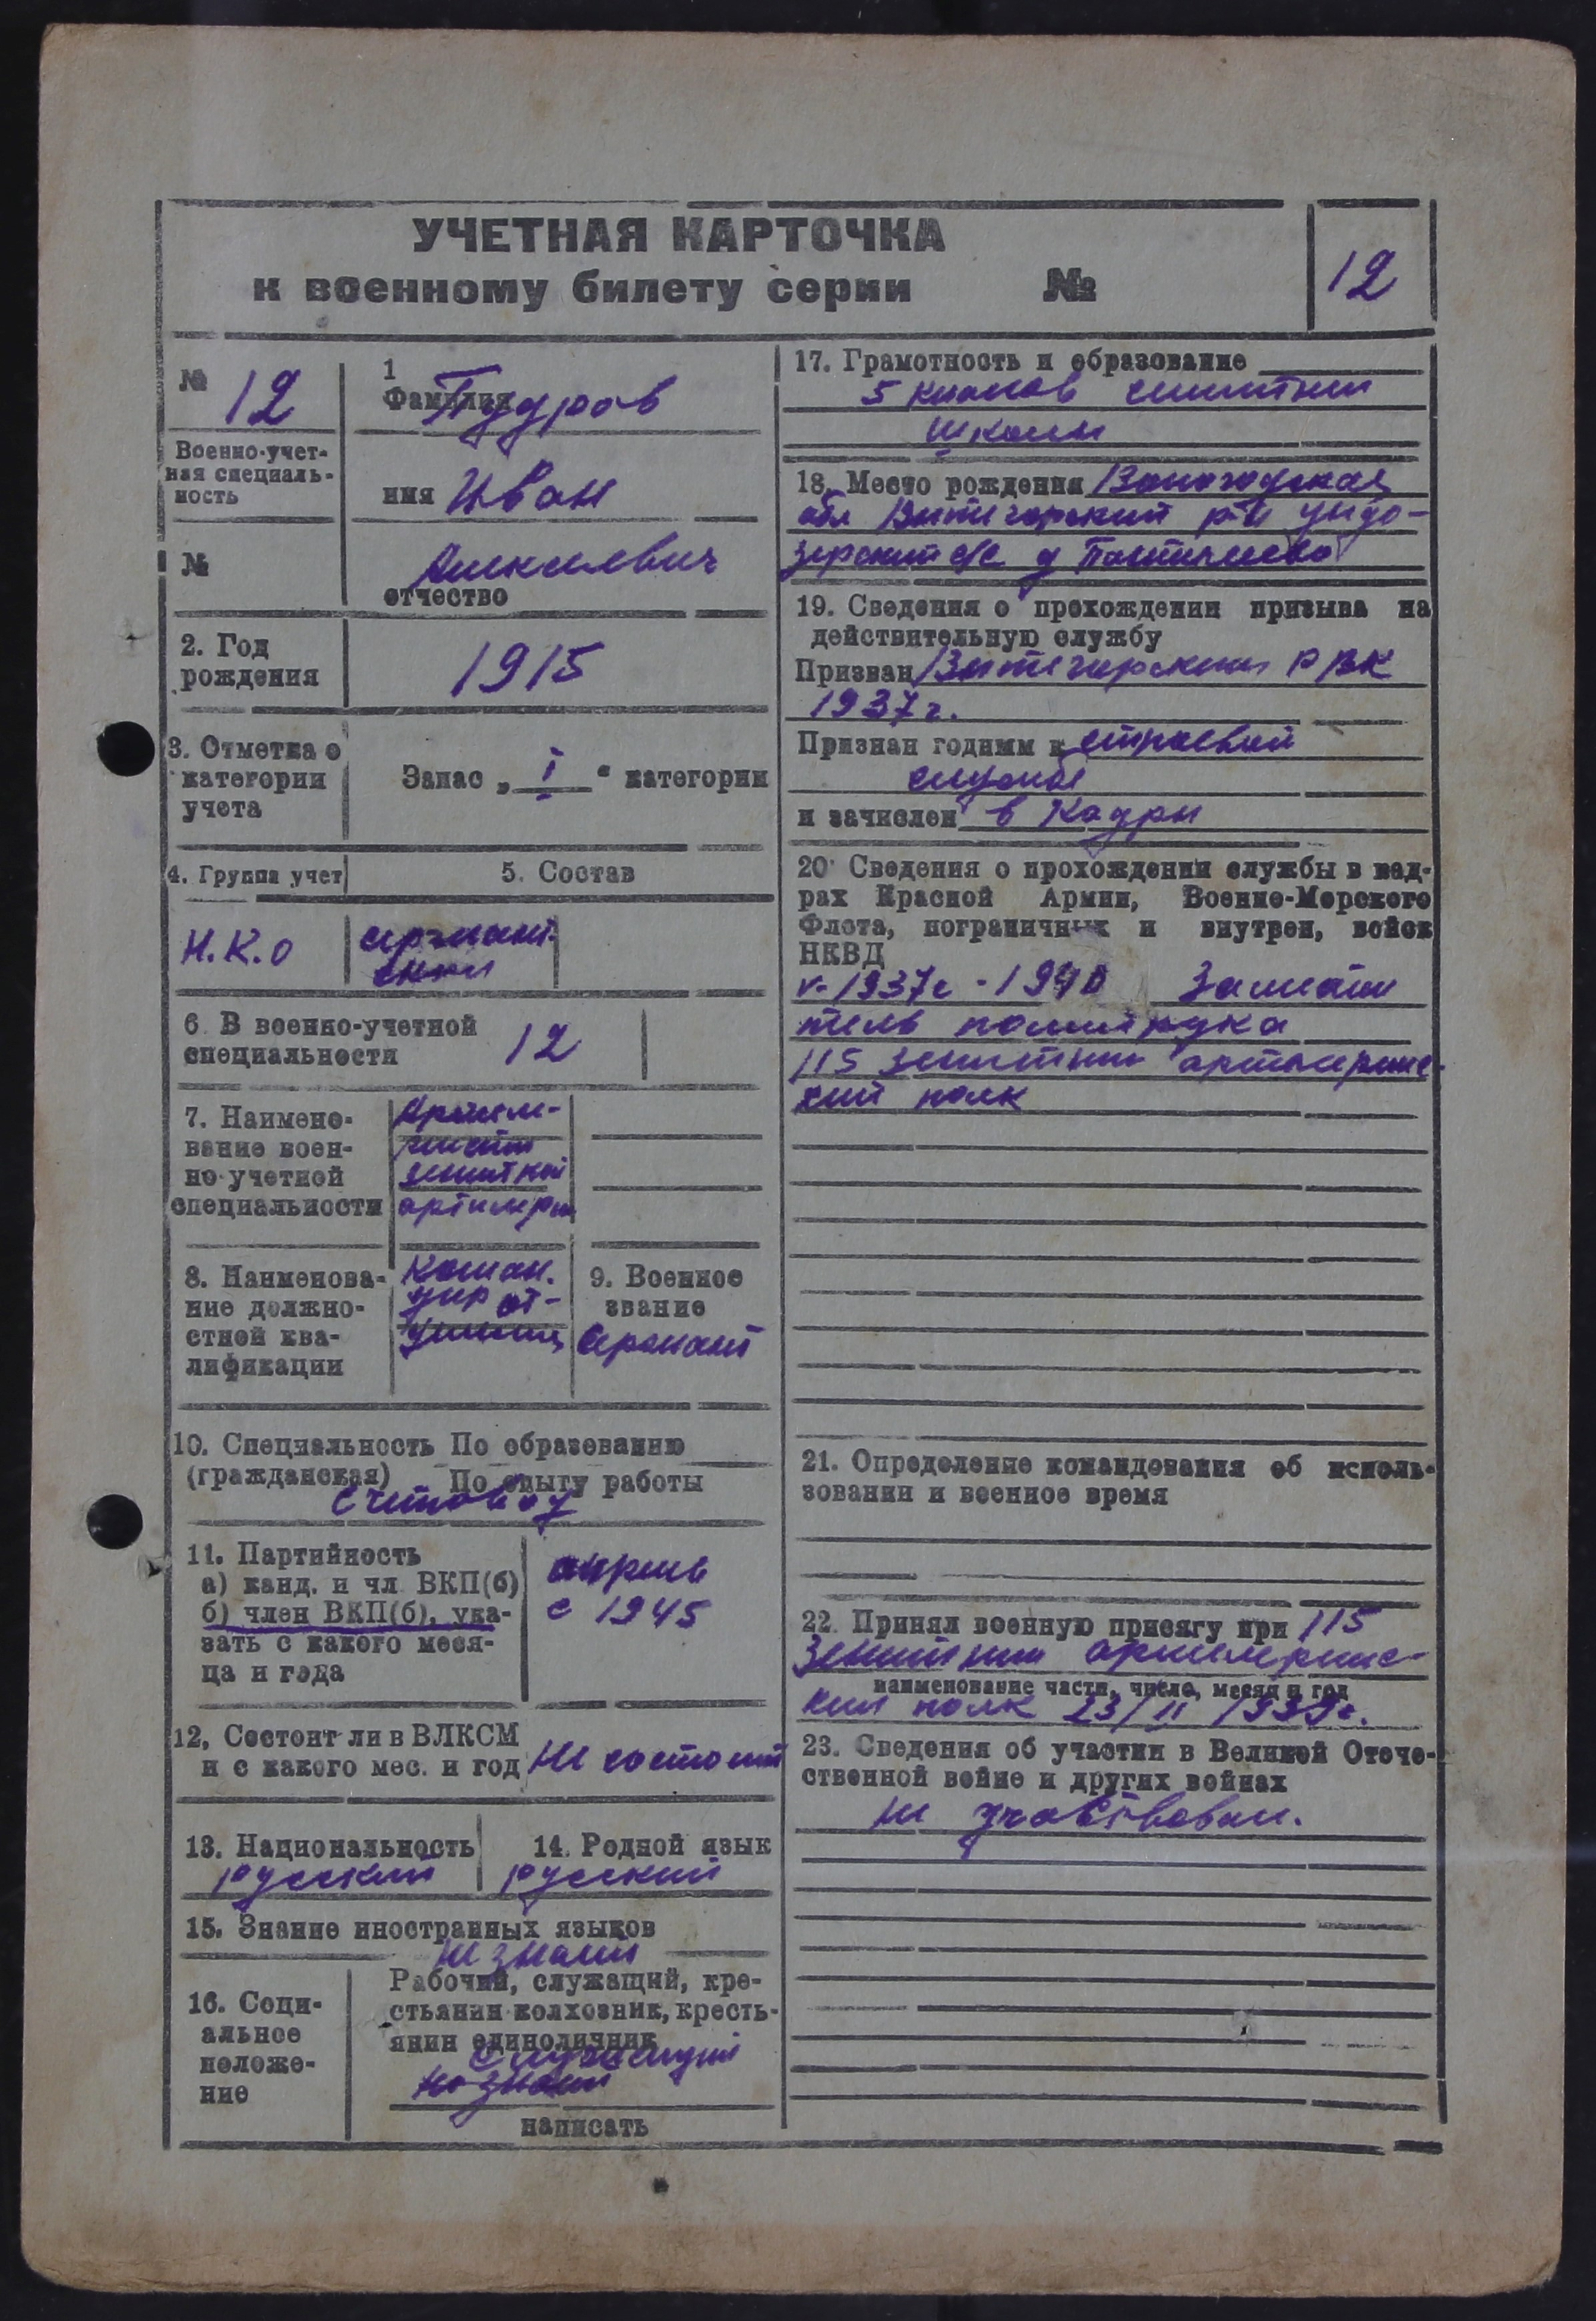 УЧЕТНАЯ КАРТОЧКА
к военному билету серии №
12
№ 12
Военно-учет-
ная специаль-
ность
№
1
Фамилия Пудров
имя Иван
Алексеевич
отчество
2. Год
рождения
1915
3. Отметка о
категории
учета
Запас „ I “ категории
4. Группа учет
5. Состав
Н.К.О
сержант.
ский
6 В военно-учетной
специальности
12
7. Наимено-
вание воен-
но-учетной
специальности
зенитной
8. Наименова-
ние должно-
стной ква-
лификации
Коман.
дир от-
9. Военное
звание
Сержант
10. Специальность По образованию
(гражданская) По опыту работы
Счетовод
11. Партийность
а) канд. и чл ВКП(б)
б) член ВКП(б), ука-
зать с какого меся-
ца и года
апрель
с 1945
12, Состоит ли в ВЛКСМ
и с какого мес. и год Не состоит
13. Национальность
русский
14. Родной язык
русский
15. Знание иностранных языков
не знает
16. Соци-
альное
положе-
ние
Рабочий, служащий, кре-
стьянин-колхозник, кресть-
янин единоличник
служащий
написать
17. Грамотность и образование
5 классов
школы
18. Место рождения Вологодская
обл Вытегорский р-н Ундо-
зерский с/с д
19. Сведения о прохождении призыва на
действительную службу
Призван Вытегорским РВК
1937г.
Признан годным к строевой
службе
и зачислен в Кадры
20 Сведения о прохождении службы в кад-
рах Красной Армии, Военно-Морского
Флота, пограничных и внутрен, войск
НКВД
1937г - 1940 Замести
тель политрука
115 зенитный артилерийс-
кий полк
21. Определение командования об исполь-
зовании и военное время
22. Принял военную присягу при 115
зенитный артилерийс-
наименование части, число, месяц и год
кий полк 23/II 1939г.
23. Сведения об участии в Великой Отече-
ственной войне и других войнах
не участвовал.